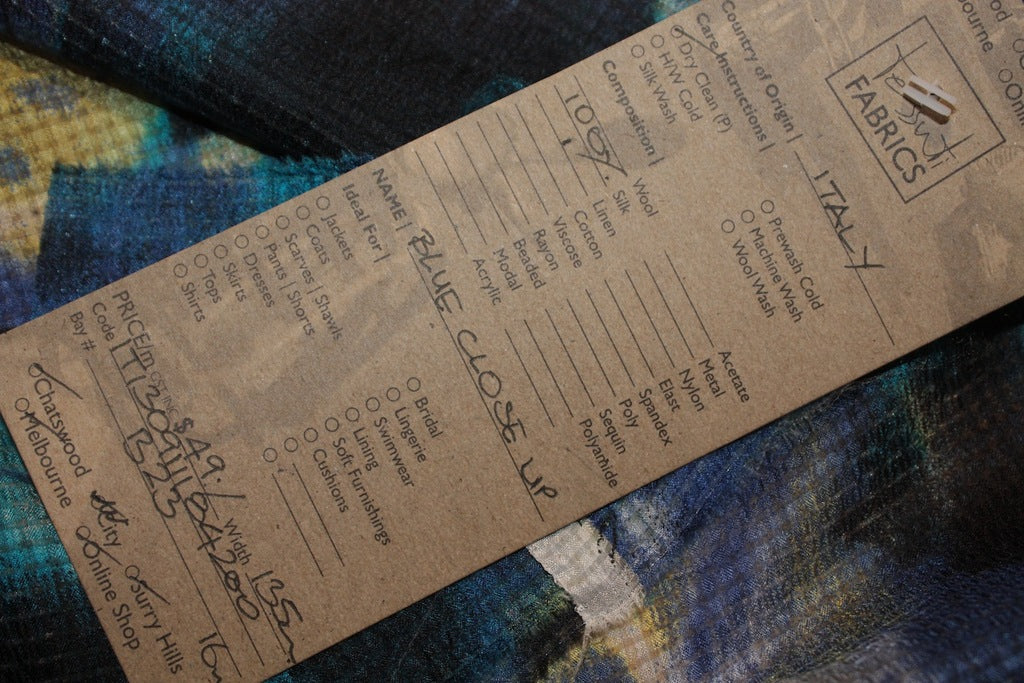 Tessuti
FABRICS
Country of Origin | ITALY
Care Instructions |
Dry Clean (P)
H/W Cold
Silk Wash
Prewash Cold
Machine Wash
Wool Wash
Composition |
Wool
100% Silk
Linen
Cotton
Viscose
Rayon
Beaded
Modal
Acrylic
Acetate
Metal
Nylon
Elast
Spandex
Poly
Sequin
Polyamide
NAME | BLUE CLOSE UP
Ideal For |
Jackets
Coats
Scarves | Shawls
Pants | Shorts
Dresses
Skirts
Tops
Shirts
Bridal
Lingerie
Swimwear
Lining
Soft Furnishings
Cushions
PRICE/m GST INC $49./ Width 135
Code
Bay # B23
Chatswood
Melbourne
City
Online Shop
Surry Hills
bourne